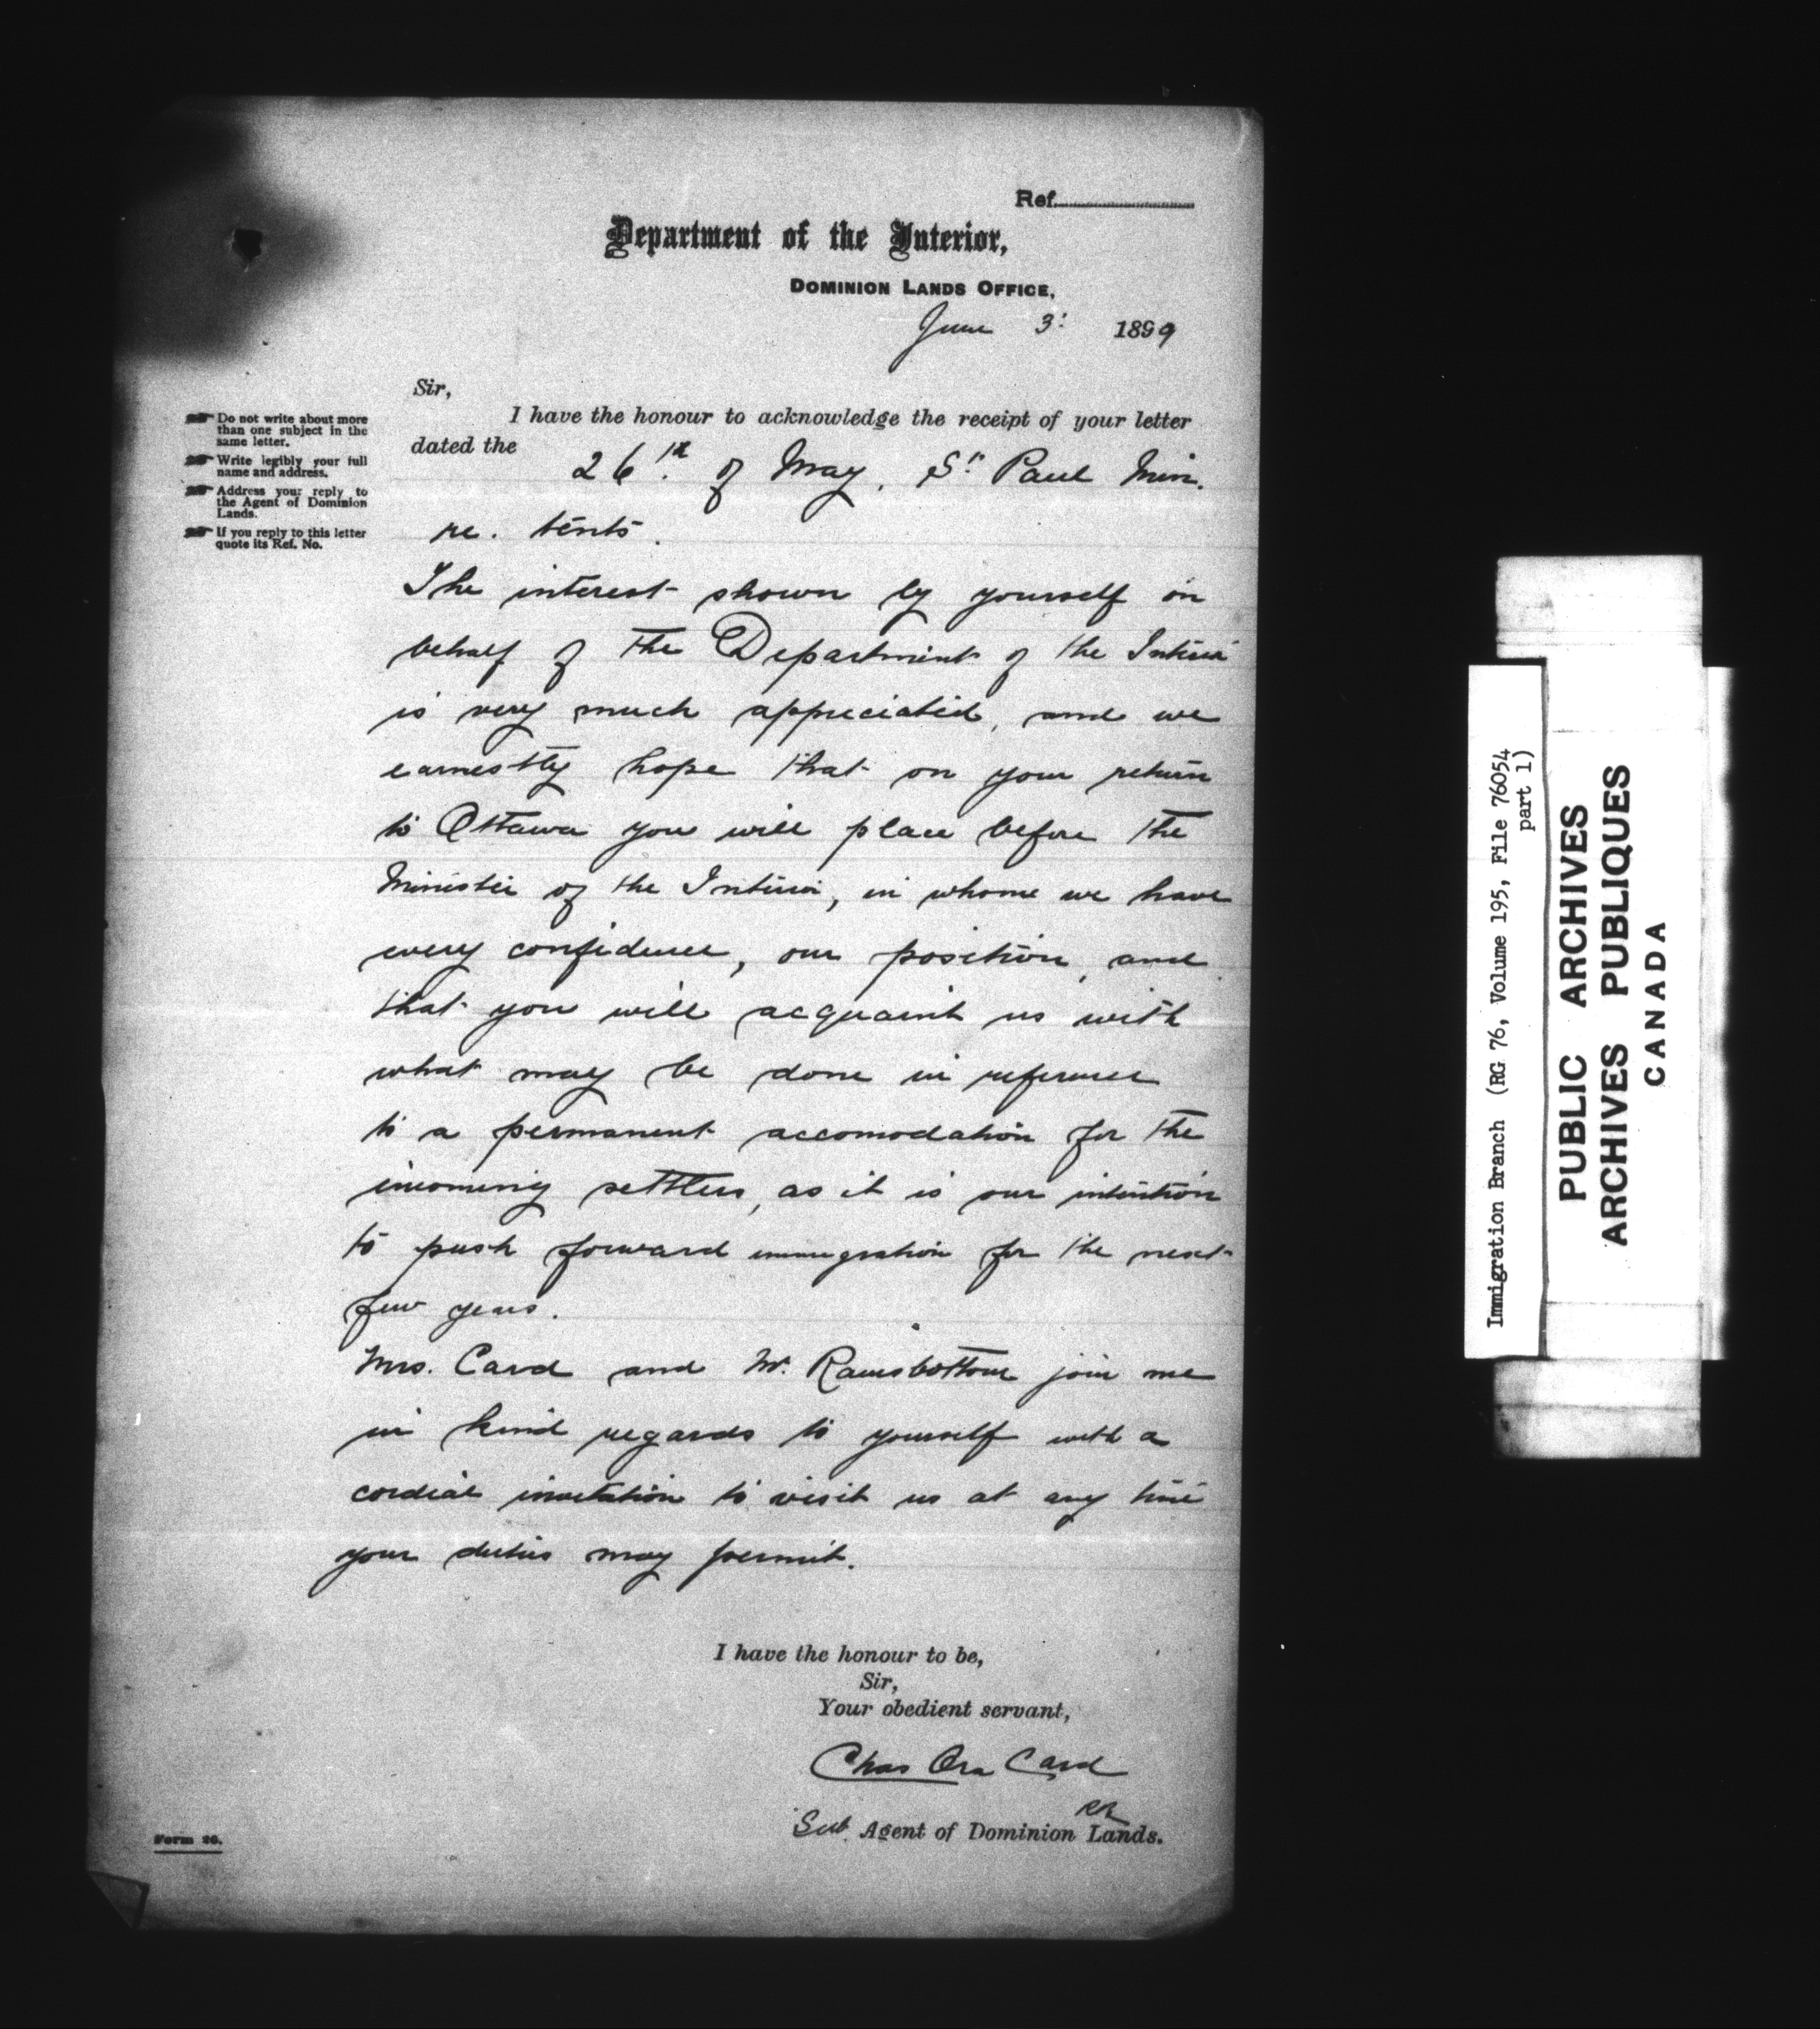 Ref.
Department of the Interior,
DOMINION LANDS OFFICE,
June 3: 1899
Sir,
I have the honour to acknowledge the receipt of your letter
dated the
26th of May, St Paul Min.
re. tents.
The interest shown by yourself on
behalf of the Department of the Interior
is very much appreciated, and we
earnestly hope that on your return
to Ottawa you will place before the
Minister of the Interior, in whome we have
every confidence, our position, and
that you will acquaint us with
what may be done in reference
to a permanent accomodation for the
incoming settlers, as it is our intention
to push forward immigration for the next
few years.
Mrs. Card and Mr. Ramsbottom join me
in kind regards to yourself with a
cordial invitation to visit us at any time
your duties may permit.
I have the honour to be,
Sir,
Your obedient servant,
Chas Ora Card
RR
Sub. Agent of Dominion Lands.
Do not write about more
than one subject in the
same letter.
Write legibly your full
name and address.
Address your reply to
the Agent of Dominion
Lands.
If you reply to this letter
quote its Ref. No.
Form 26.
Immigration Branch (RG 76, Volume 195, File 76054
part 1)
PUBLIC ARCHIVES
ARCHIVES PUBLIQUES
CANADA